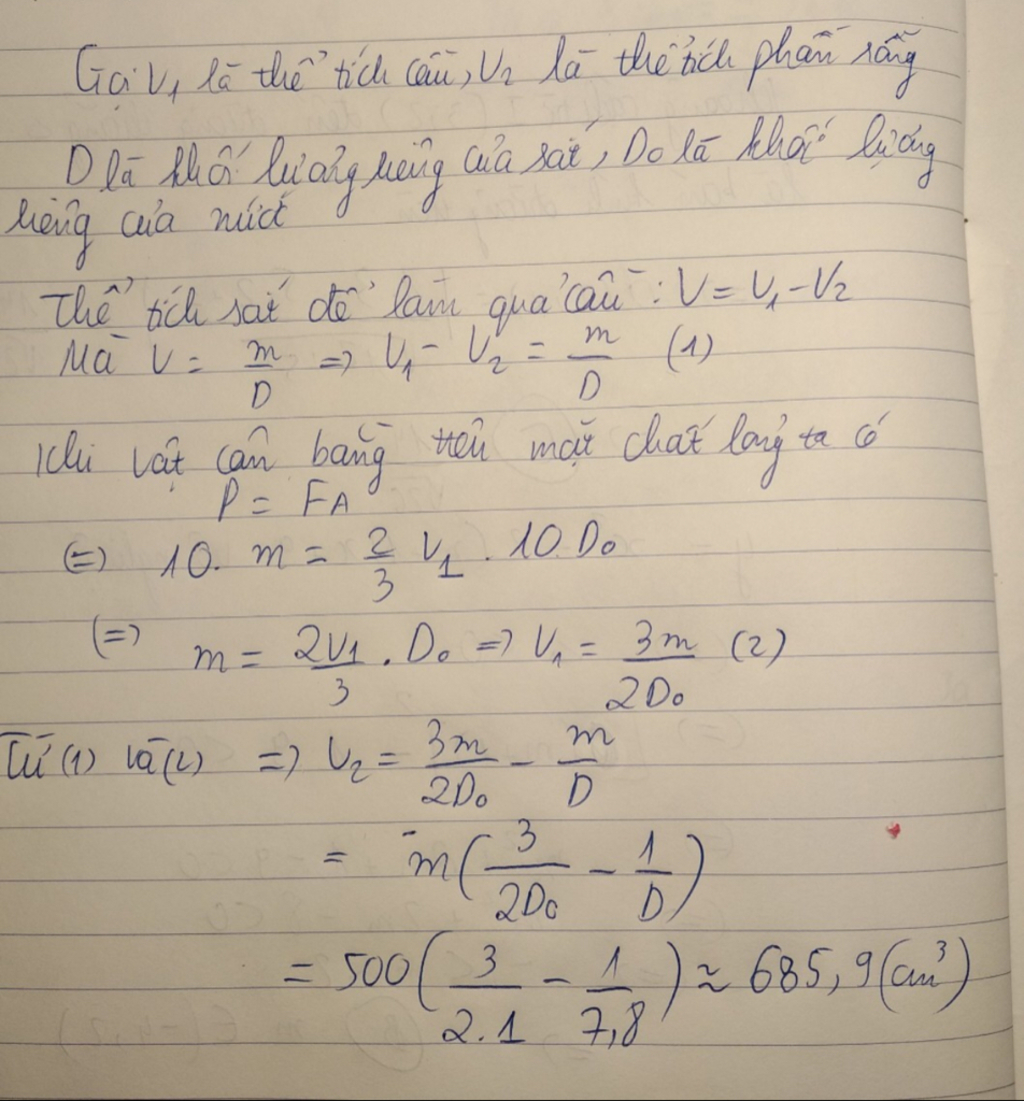 Gọi V₁ là thể tích cầu, V₂ là thể tích phần rỗng
D là khối lượng riêng của sắt, D₀ là khối lượng
riêng của nước
Thể tích sắt để làm quả cầu : V = V₁ - V₂
Mà V = m/D => V₁ - V₂ = m/D (1)
Khi vật cân bằng trên mặt chất lỏng ta có
P = F_A
(=) 10. m = 2/3 V₁ . 10 D₀
(=) m = 2V₁/3 . D₀ => V₁ = 3m/2D₀ (2)
Từ (1) và (2) => V₂ = 3m/2D₀ - m/D
= m(3/2D₀ - 1/D)
= 500(3/2.1 - 1/7,8) ≈ 685,9 (cm³)